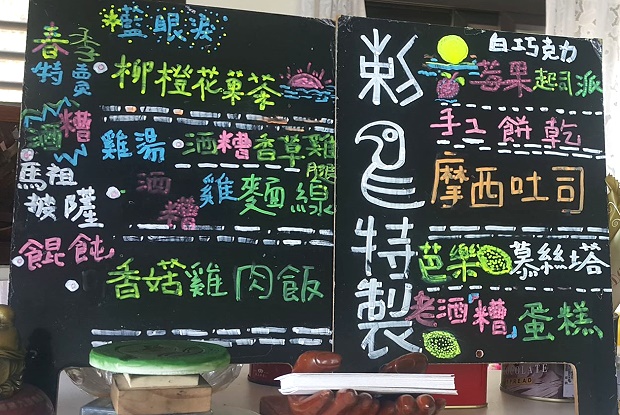 藍眼淚
春季特賣
柳橙花菓茶
酒糟雞湯
酒糟香草雞腿
馬祖披薩
酒糟雞麵線
餛飩
香菇雞肉飯
特製
白巧克力
莓果起司派
手工餅乾
摩西吐司
芭樂慕絲塔
老酒「糟」蛋糕
CHOCOLATE
SPREAD